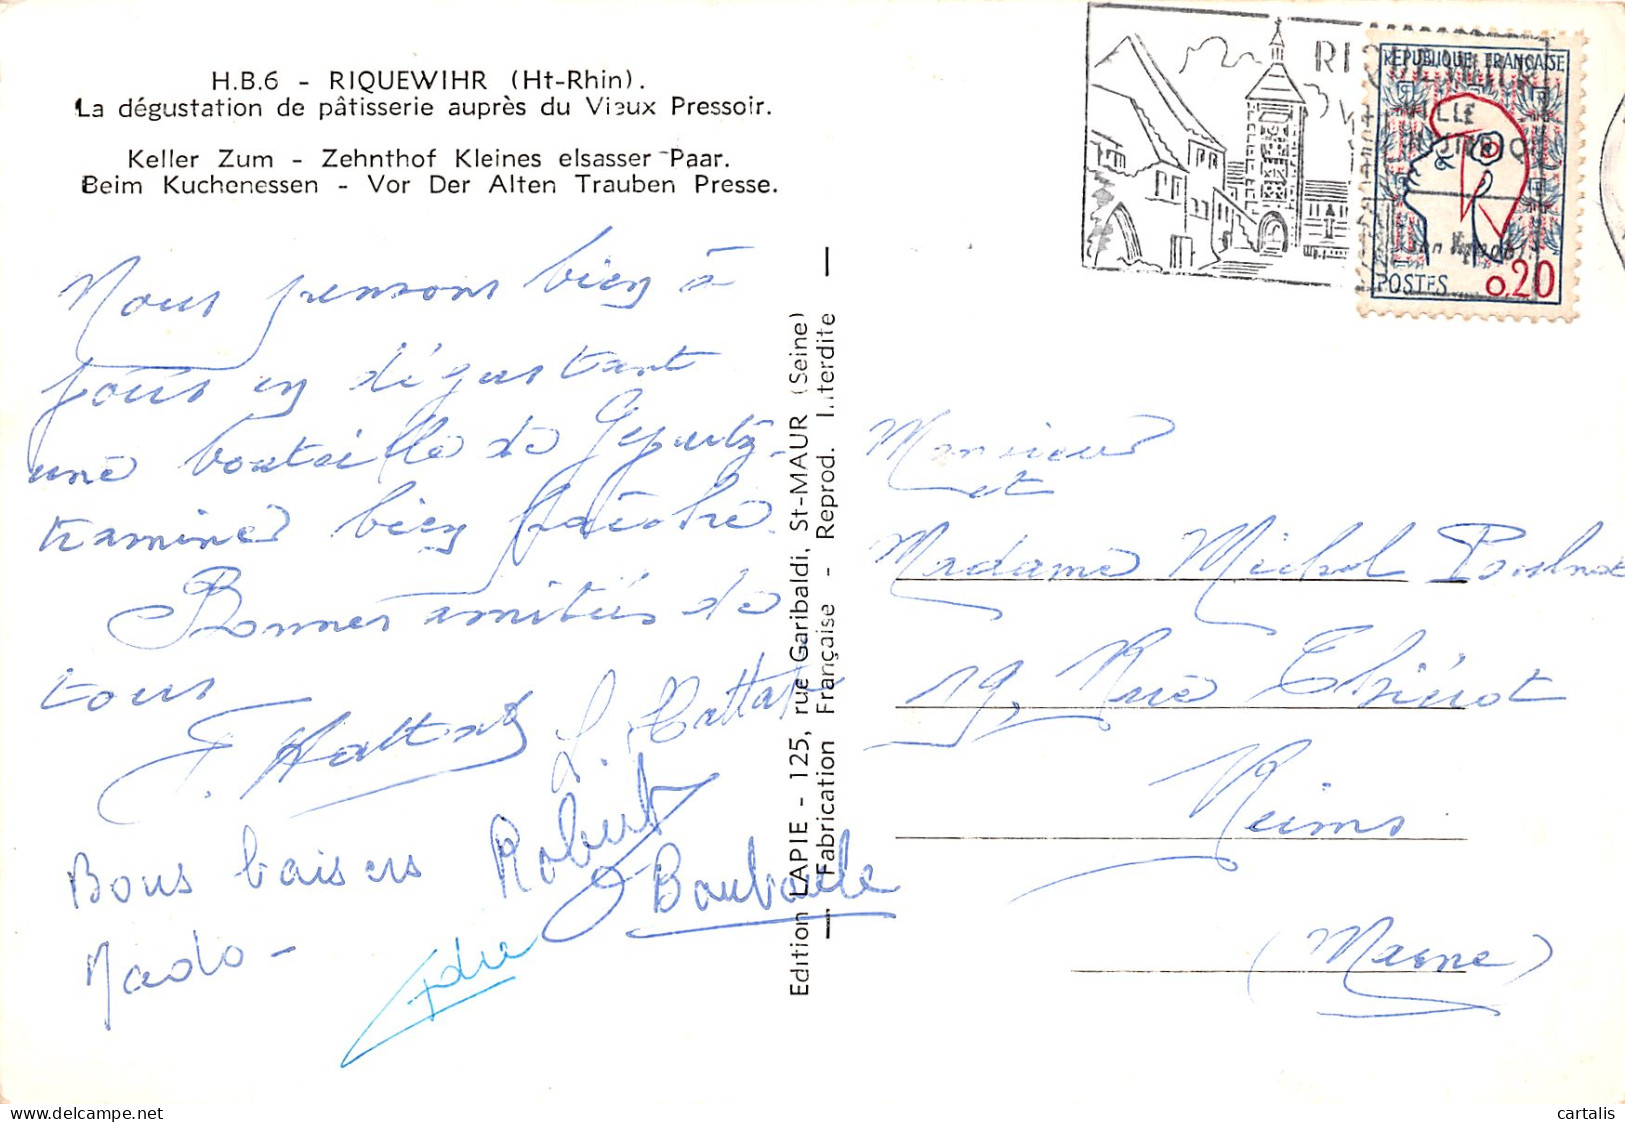 H.B.6 - RIQUEWIHR (Ht-Rhin).
La dégustation de pâtisserie auprès du Vieux Pressoir.
Keller Zum - Zehnthof Kleines elsasser Paar.
Beim Kuchenessen - Vor Der Alten Trauben Presse.
Nous pensons bien à
vous en dégustant
une bouteille de Gewurtz-
traminer bien fraîche.
Bonnes amitiés de
tous
Bons baisers Robert
Bouboule
Mado -
Edition LAPIE - 125, rue Garibaldi, St-MAUR (Seine)
Fabrication Française - Reprod. Interdite
RÉPUBLIQUE FRANÇAISE
POSTES 0,20
Monsieur
et
Madame Michel
19, Rue Thiérot
Reims
(Marne)
cartalis
delcampe.net